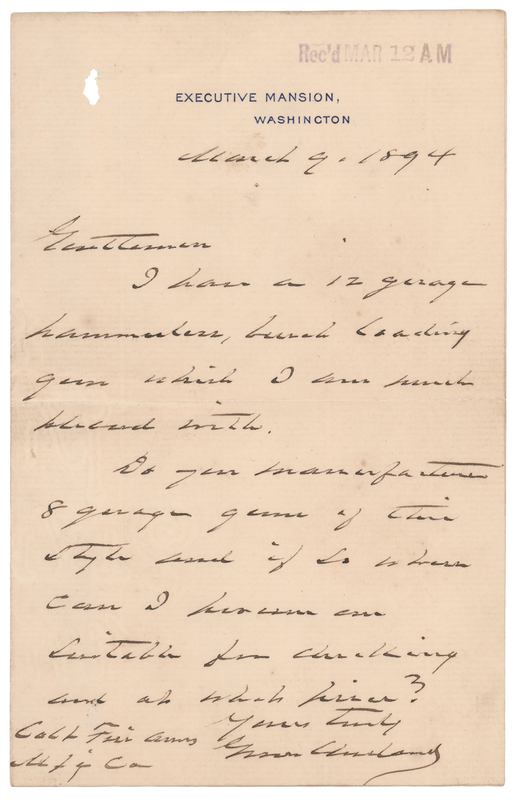 Rec'd MAR 12 AM
EXECUTIVE MANSION,
WASHINGTON
March 9, 1894
Gentlemen
I have a 12 gauge
hammerless, breech loading
gun which I am much
pleased with.
Do you manufacture
8 gauge guns of this
style and if so where
can I procure one
suitable for ducking
and at what price?
Yours truly
Grover Cleveland
Colt Fire Arms
Mf'g Co